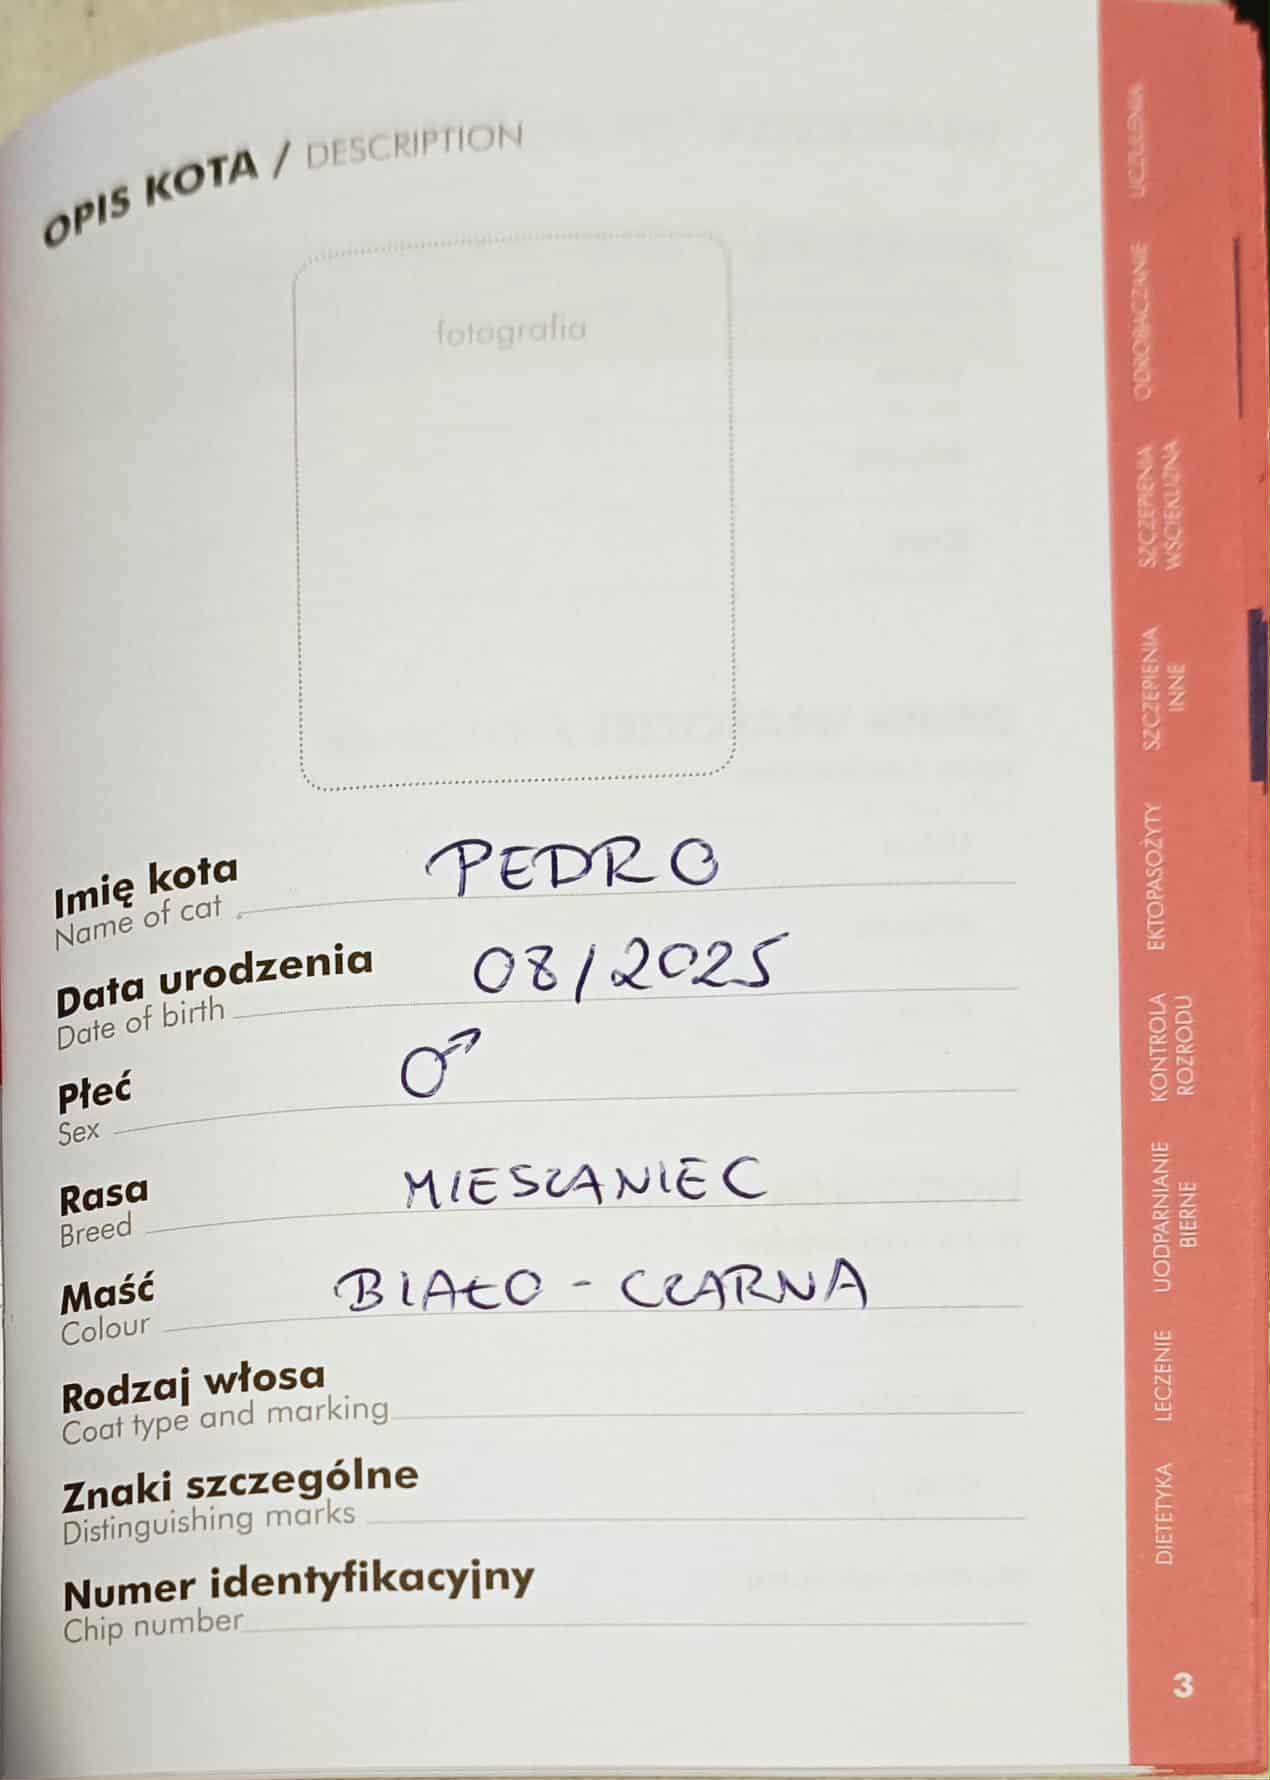 OPIS KOTA / DESCRIPTION
fotografia
Imię kota PEDRO
Name of cat
Data urodzenia 08/2025
Date of birth
Płeć ♂
Sex
Rasa MIESZANIEC
Breed
Maść BIAŁO - CZARNA
Colour
Rodzaj włosa
Coat type and marking
Znaki szczególne
Distinguishing marks
Numer identyfikacyjny
Chip number
UCZULENIA
ODROBACZANIE
SZCZEPIENIA
WŚCIEKLIZNA
SZCZEPIENIA
INNE
EKTOPASOŻYTY
KONTROLA
ROZRODU
UODPARNIANIE
BIERNE
LECZENIE
DIETETYKA
3